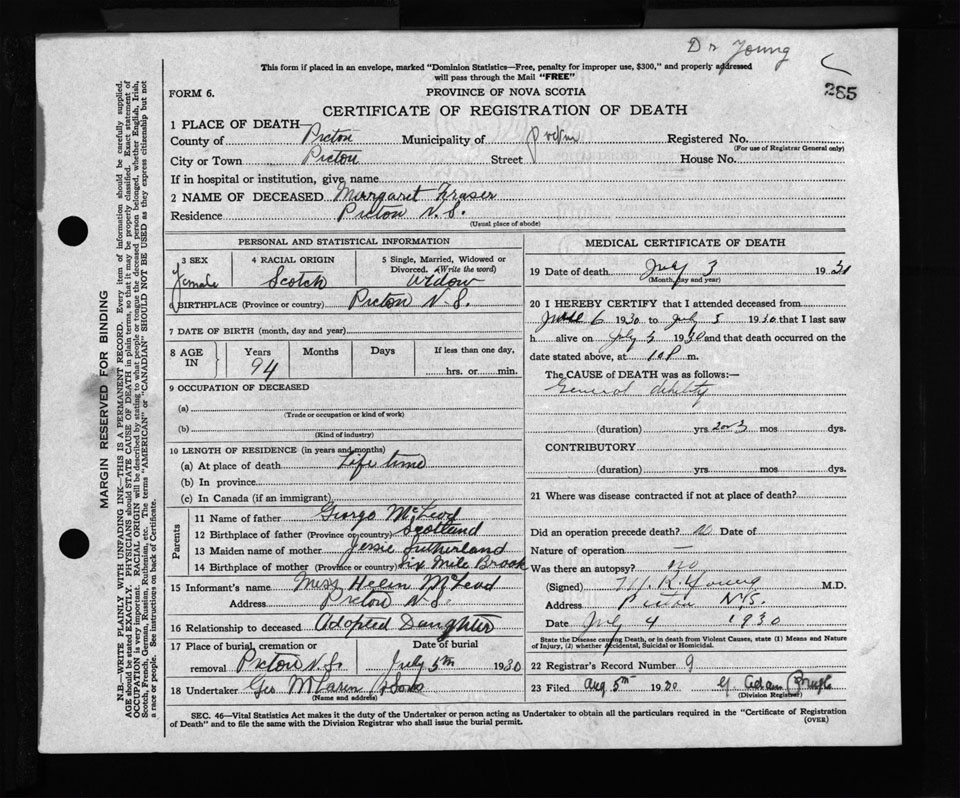 Dr Young
This form if placed in an envelope, marked "Dominion Statistics—Free, penalty for improper use, $300," and properly addressed
will pass through the Mail "FREE"
265
FORM 6.
PROVINCE OF NOVA SCOTIA
CERTIFICATE OF REGISTRATION OF DEATH
1 PLACE OF DEATH—
County of Pictou Municipality of Registered No.
(For use of Registrar General only)
City or Town Pictou Street House No.
If in hospital or institution, give name
2 NAME OF DECEASED Margaret Fraser
Residence Pictou N.S.
(Usual place of abode)
PERSONAL AND STATISTICAL INFORMATION
3 SEX 4 RACIAL ORIGIN 5 Single, Married, Widowed or
Divorced. (Write the word)
Female Scotch Widow
6 BIRTHPLACE (Province or country) Pictou N.S.
7 DATE OF BIRTH (month, day and year)
8 AGE IN Years Months Days If less than one day,
94 hrs. or min.
9 OCCUPATION OF DECEASED
(a)
(Trade or occupation or kind of work)
(b)
(Kind of industry)
10 LENGTH OF RESIDENCE (in years and months)
(a) At place of death Life time
(b) In province
(c) In Canada (if an immigrant)
Parents
11 Name of father George McLeod
12 Birthplace of father (Province or country) Scotland
13 Maiden name of mother Jessie Sutherland
14 Birthplace of mother (Province or country) Six Mile Brook
15 Informant's name Miss Helen McLeod
Address Pictou N.S.
16 Relationship to deceased Adopted Daughter
17 Place of burial, cremation or Date of burial
removal Pictou N.S. July 5th 1930
18 Undertaker Geo McLaren & Sons
(Name and address)
MEDICAL CERTIFICATE OF DEATH
19 Date of death July 3 1930
(Month, day and year)
20 I HEREBY CERTIFY that I attended deceased from
June 6 1930 to July 3 1930 that I last saw
h alive on July 3 1930 and that death occurred on the
date stated above, at 10 P m.
The CAUSE of DEATH was as follows:—
General debility
(duration) yrs 2 or 3 mos dys.
CONTRIBUTORY
(duration) yrs. mos dys.
21 Where was disease contracted if not at place of death?
Did an operation precede death? no Date of
Nature of operation —
Was there an autopsy? no
(Signed) Young M.D.
Address Pictou N.S.
Date July 4 1930
State the Disease causing Death, or in death from Violent Causes, state (1) Means and Nature
of Injury, (2) whether Accidental, Suicidal or Homicidal.
22 Registrar's Record Number 9
23 Filed Aug 5th 1930
(Division Registrar)
SEC. 46—Vital Statistics Act makes it the duty of the Undertaker or person acting as Undertaker to obtain all the particulars required in the "Certificate of Registration
of Death" and to file the same with the Division Registrar who shall issue the burial permit. (OVER)
MARGIN RESERVED FOR BINDING
N.B.—WRITE PLAINLY WITH UNFADING INK—THIS IS A PERMANENT RECORD. Every item of information should be carefully supplied.
AGE should be stated EXACTLY. PHYSICIANS should STATE CAUSE OF DEATH in plain terms, so that it may be properly classified. Exact statement of
OCCUPATION is very important. RACIAL ORIGIN will be described by stating to what people or tongue the deceased person belonged, whether English, Irish,
Scotch, French, German, Russian, Ruthenian, etc. The terms "AMERICAN" or "CANADIAN" SHOULD NOT BE USED as they express citizenship but not
a race or people. See instructions on back of Certificate.